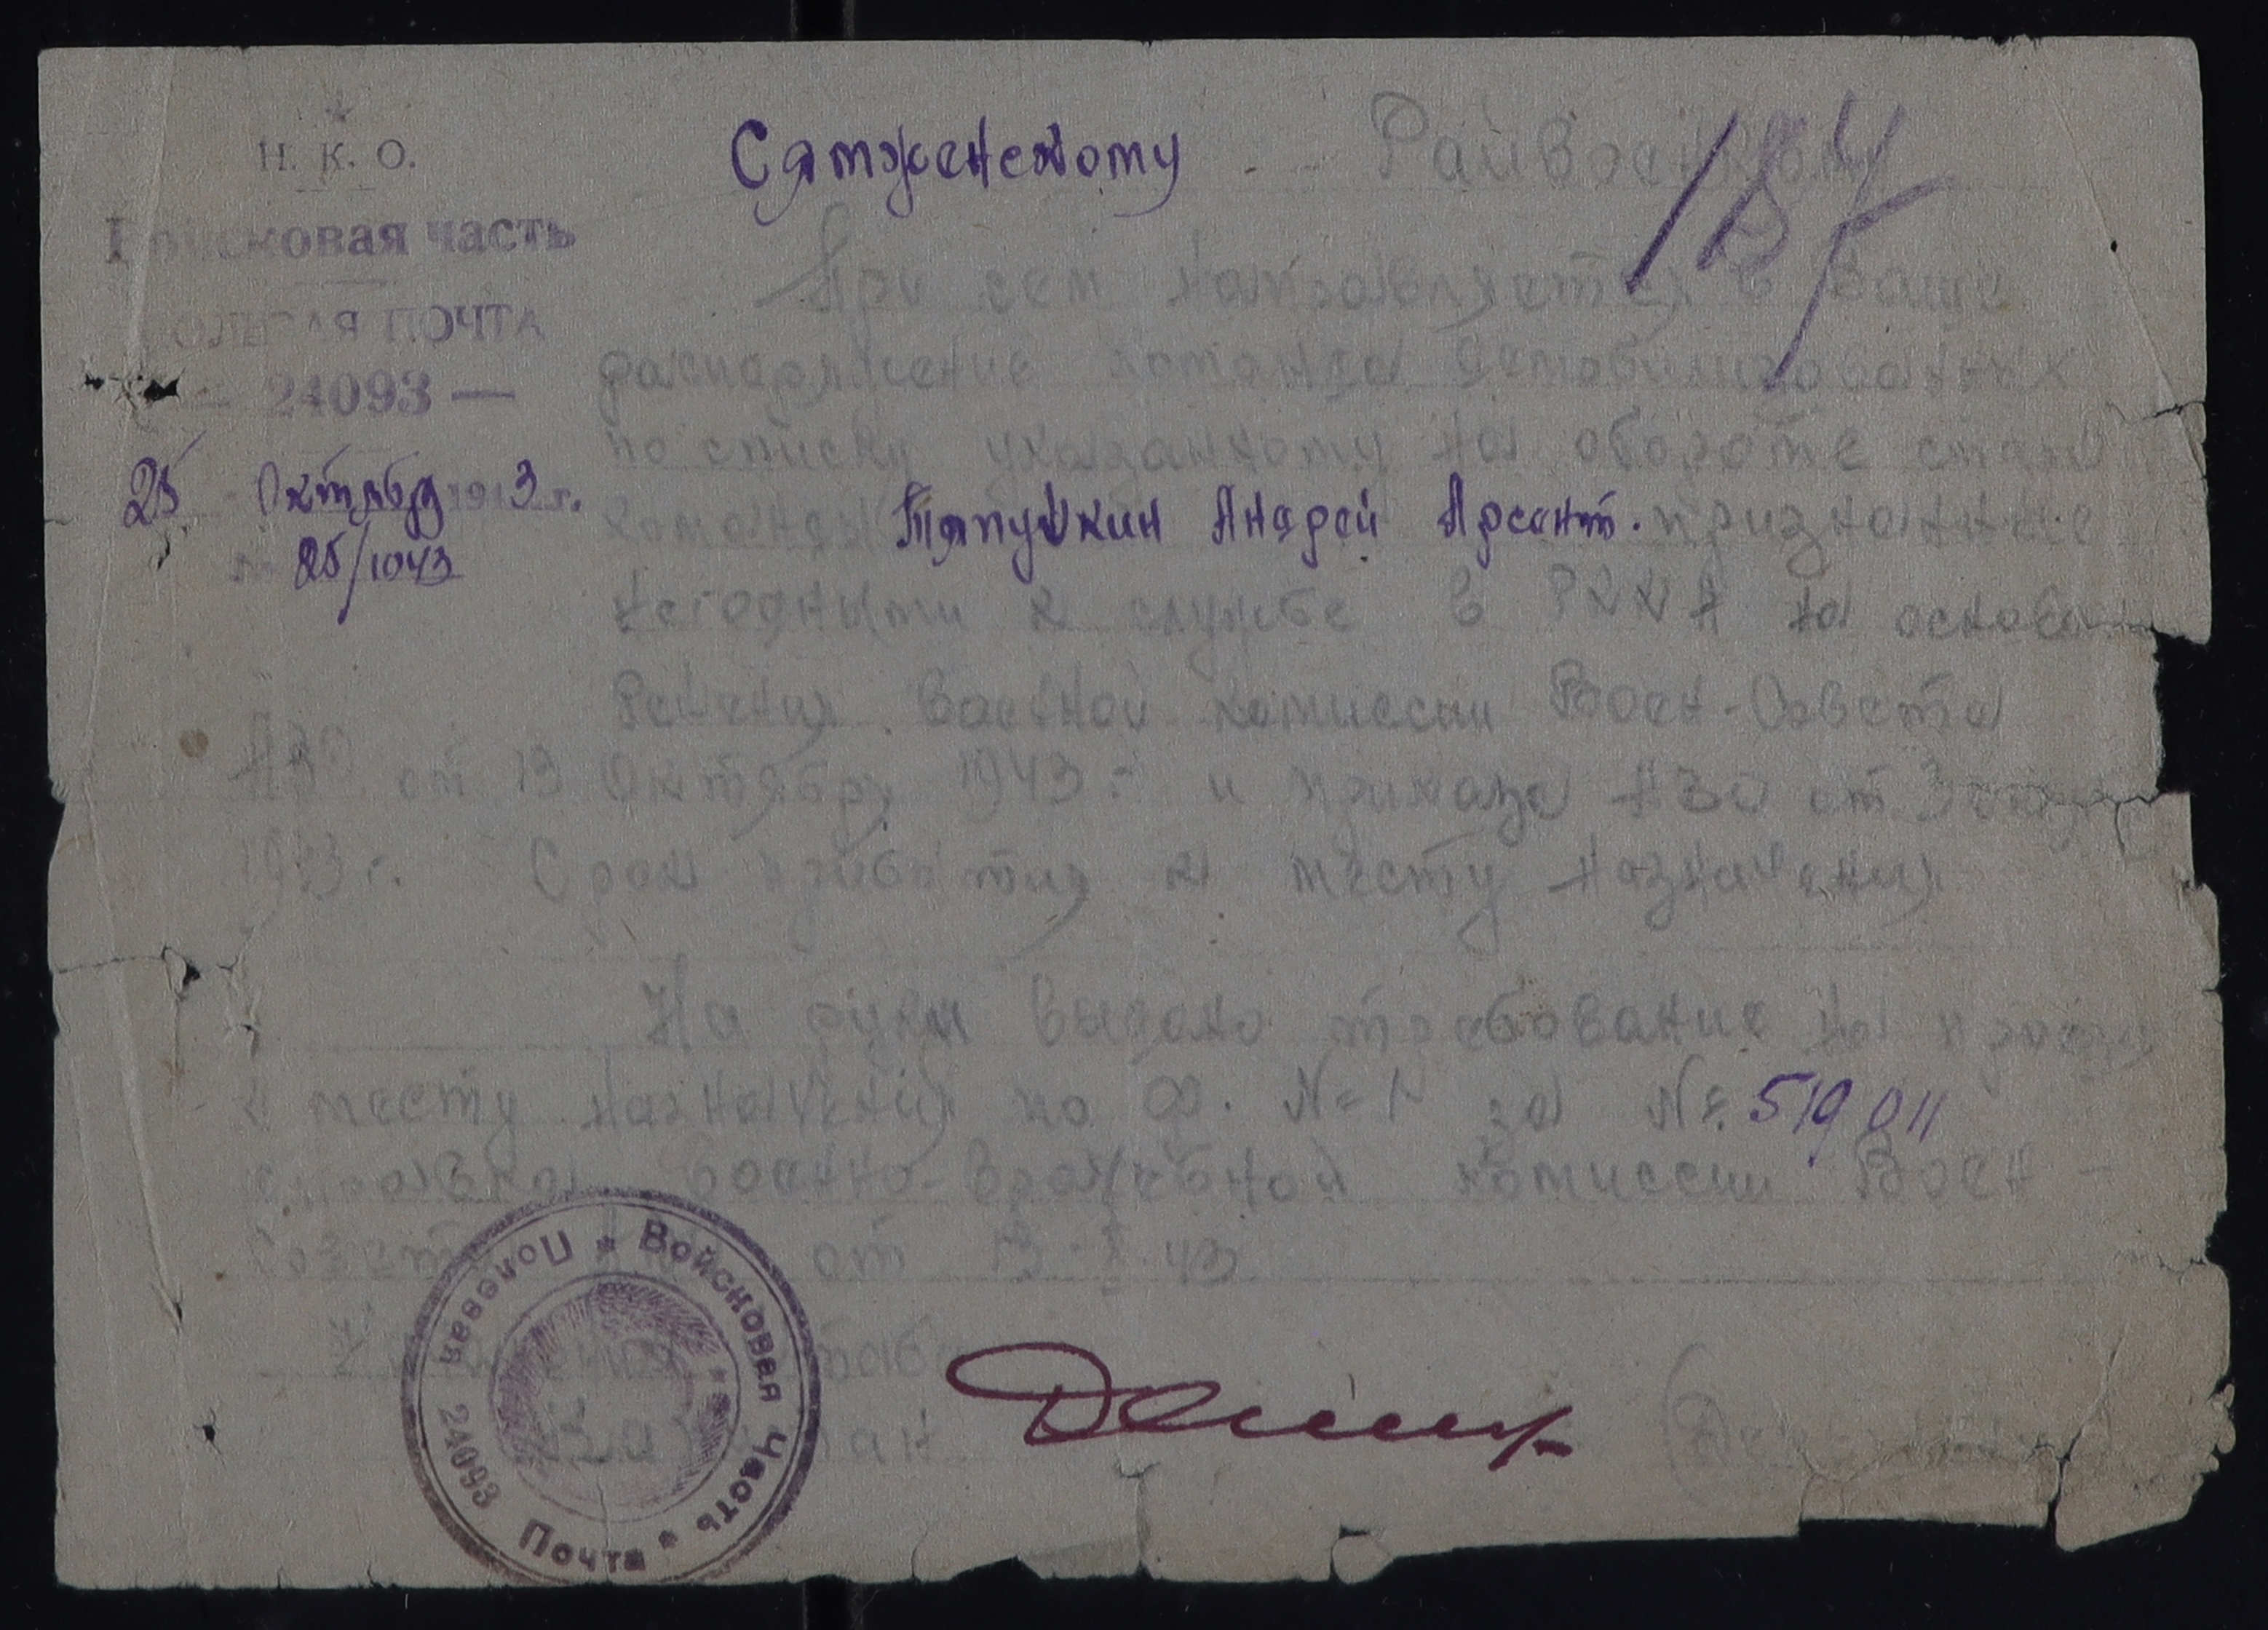 Н. К. О.
Войсковая часть
ПОЛЕВАЯ ПОЧТА
— 24093 —
25 Октября 1943 г.
№ 25/1043
Сямженскому Райвоенкому
При сем направляется в Ваше
распоряжение команда демобилизованных
по списку указанному на обороте старш
команды Тяпушкин Андрей Арсент. признанные
негодными к службе в РККА на основан
Решения Военной комиссии Воен-Совета
АВО от 13 Октября 1943 г. и приказа АВО от
1943 г. Срок прибытия к месту назначения
На руки выдано требование на проезд
к месту назначения по ф. №1 за № 519011
справка Военно-врачебной комиссии Воен-
Совета от 13.X.43
штаб
Капитан
Войсковая Часть * Полевая Почта 24093